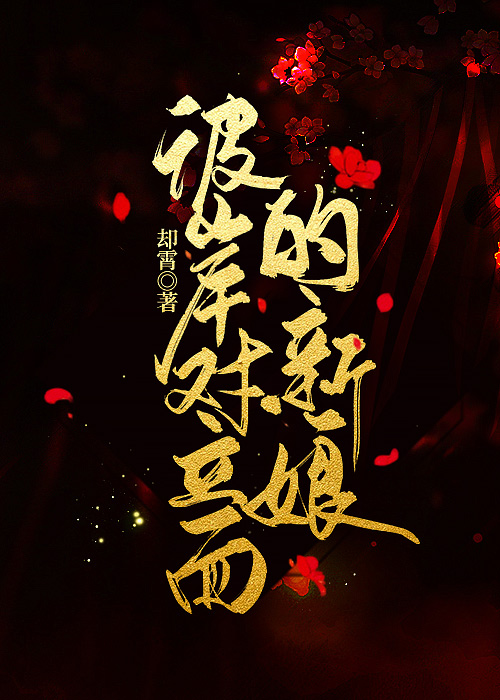 彼岸对立面
的新娘
却霄◎著